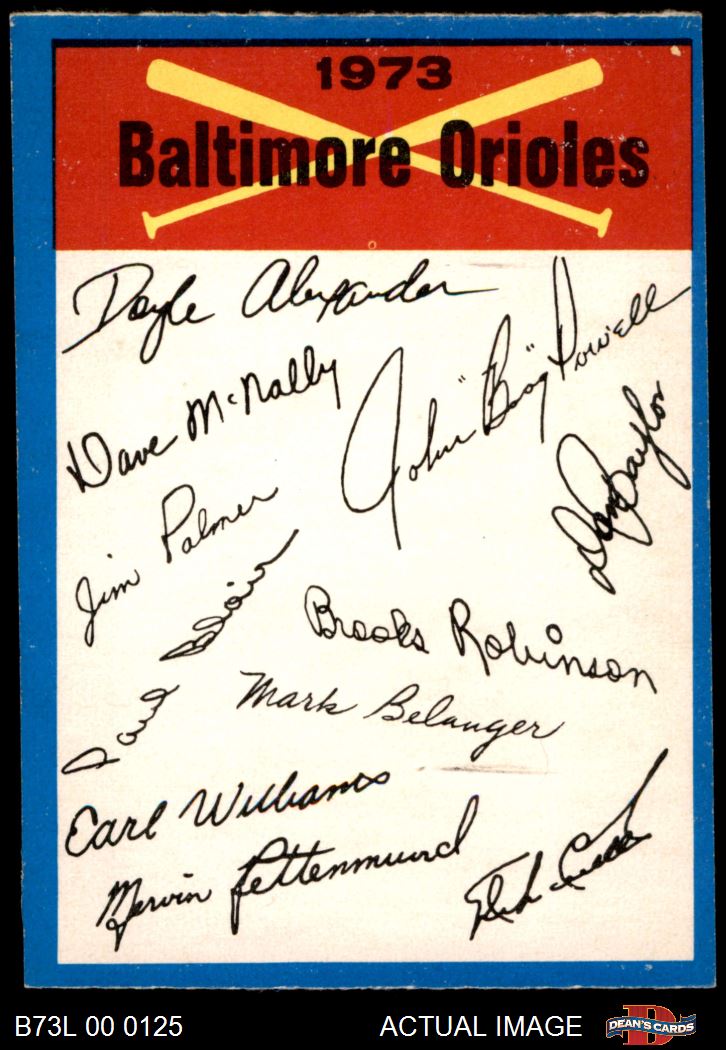 1973
Baltimore Orioles
Doyle Alexander
Dave McNally
John "Boog" Powell
Don Baylor
Jim Palmer
Paul Blair
Brooks Robinson
Mark Belanger
Earl Williams
Mervin Rettenmund
B73L 00 0125
ACTUAL IMAGE
DEAN'S CARDS